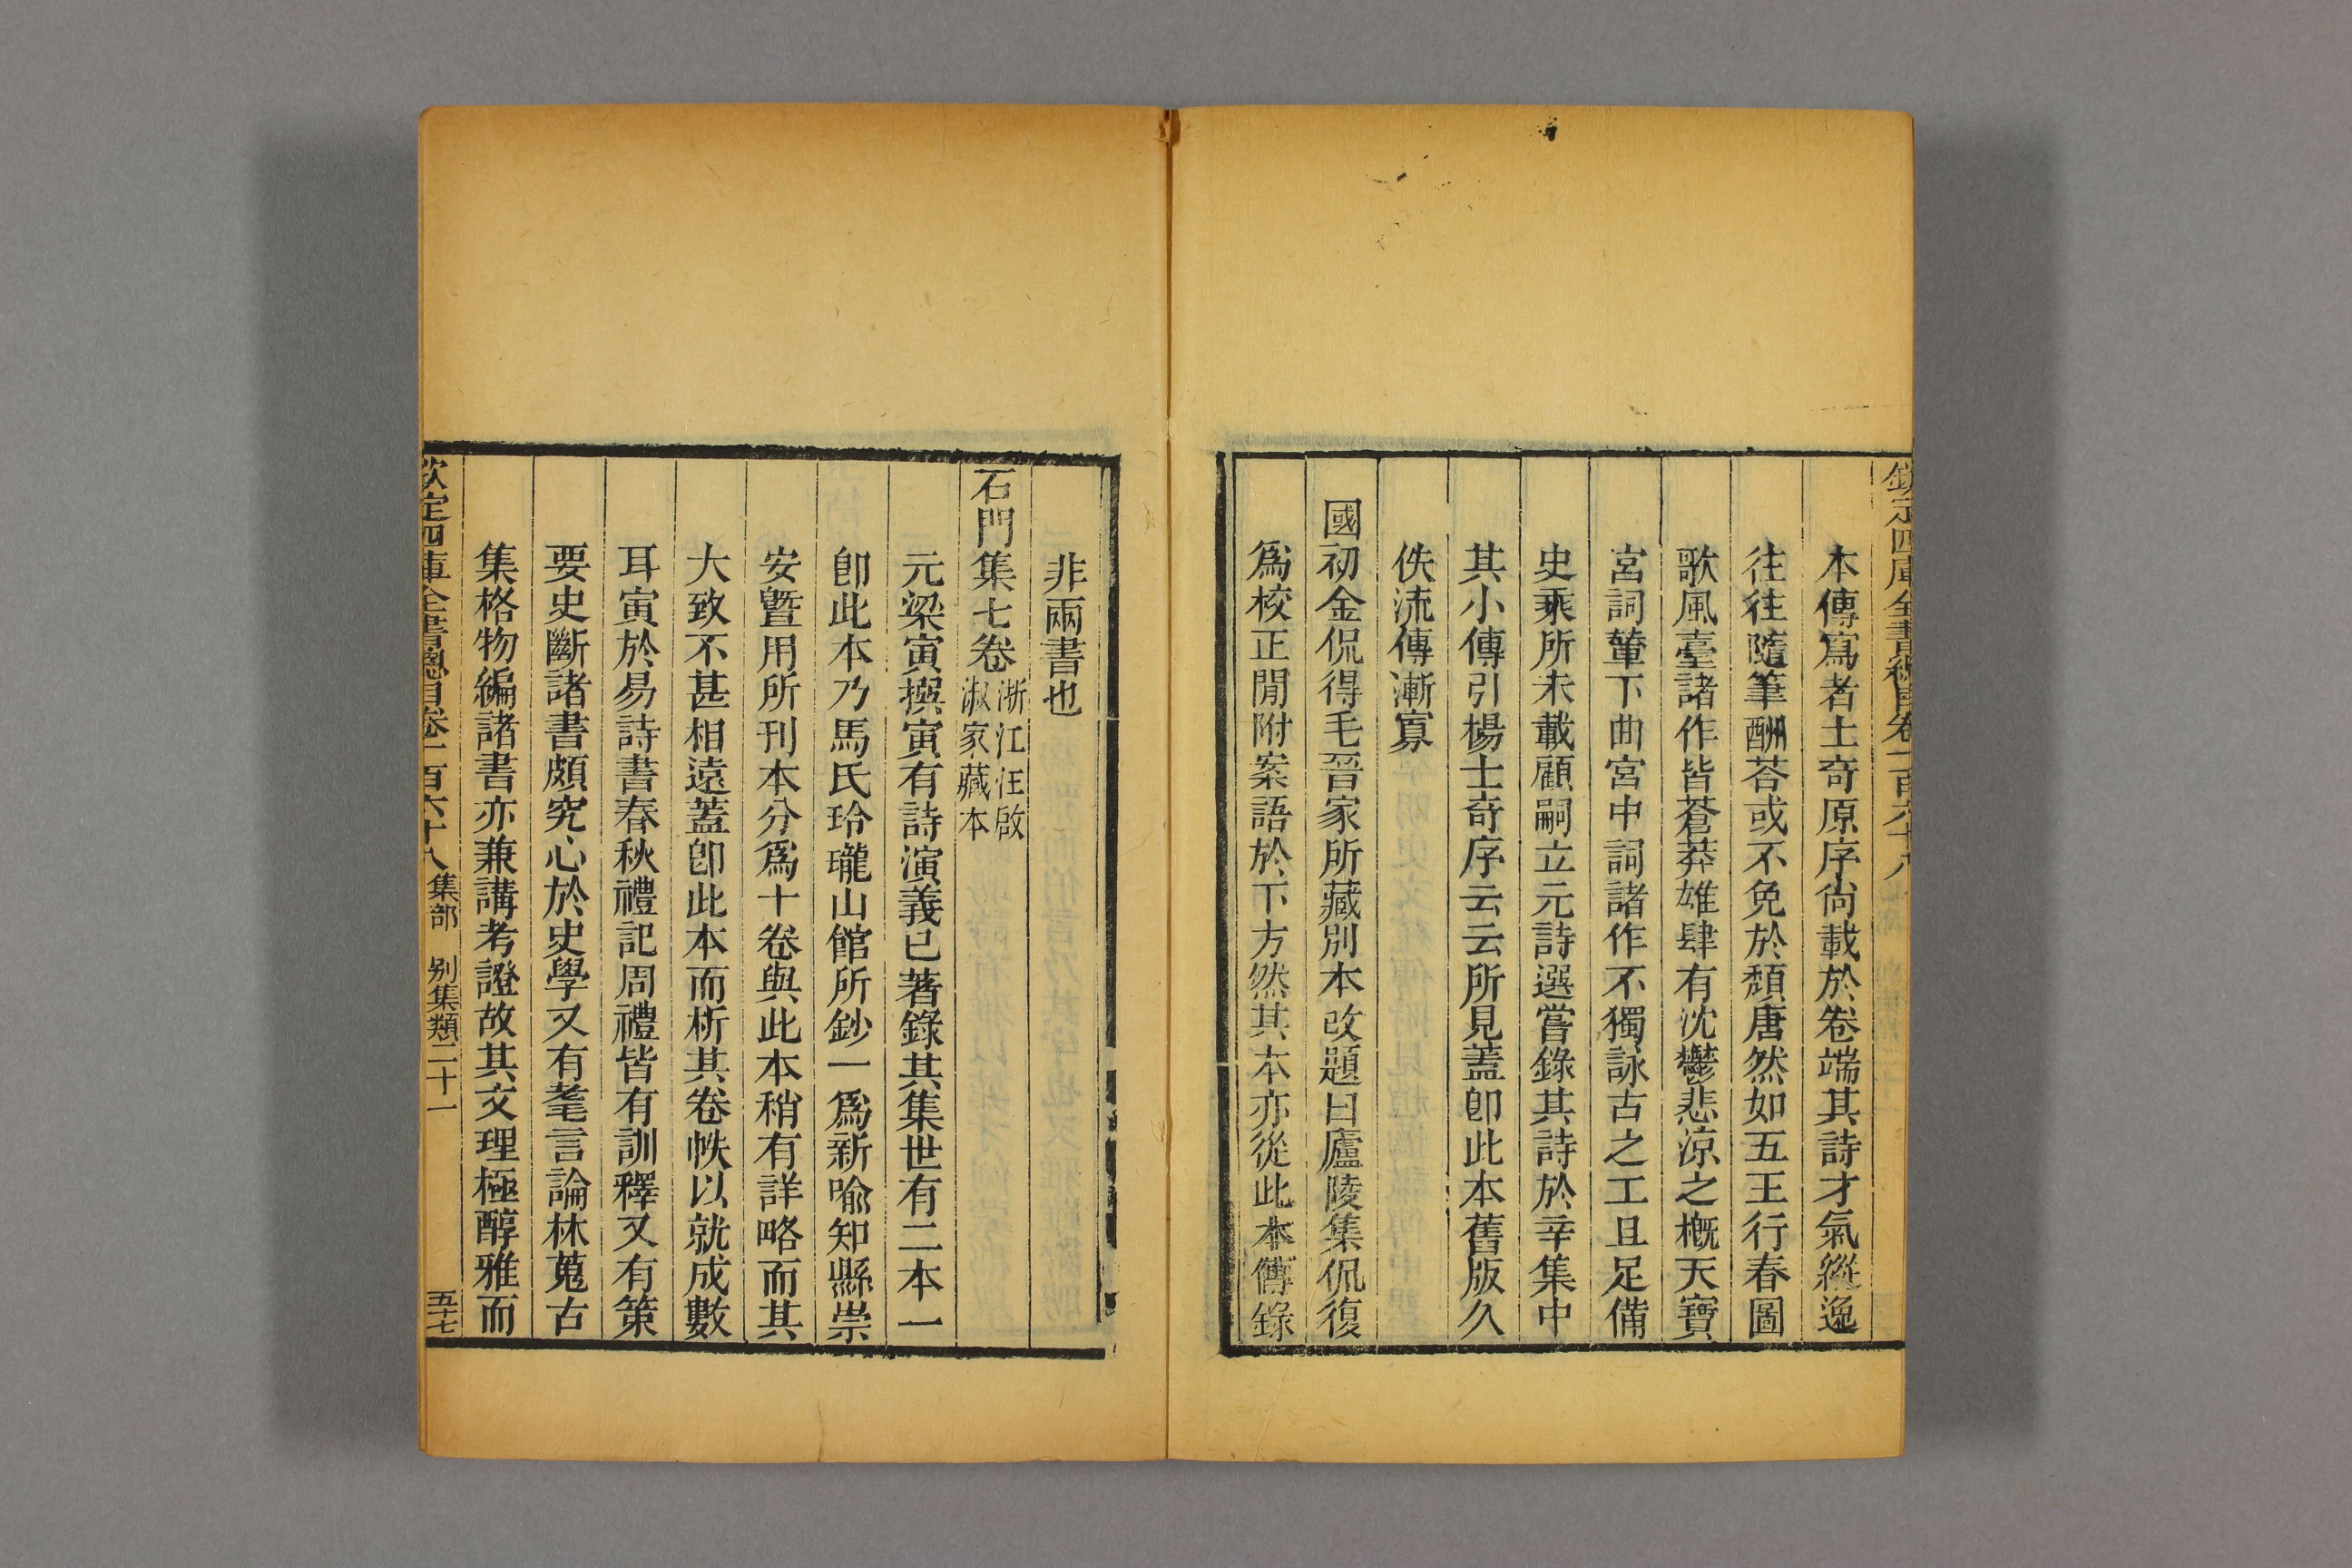 欽定四庫全書總目卷一百六十八
本傳寫者士奇原序尙載於卷端其詩才氣縱逸
往往隨筆酬荅或不免於頹唐然如五王行春圖
歌風臺諸作皆蒼莽雄肆有沈鬱悲涼之槪天寶
宮詞輦下曲宮中詞諸作不獨詠古之工且足備
史乘所未載顧嗣立元詩選嘗錄其詩於辛集中
其小傳引楊士奇序云云所見蓋卽此本舊版久
佚流傳漸寡
國初金侃得毛晉家所藏別本改題曰廬陵集侃復
爲校正閒附案語於下方然其本亦從此本傳錄
非兩書也
石門集七卷 浙江汪啟淑家藏本
元梁寅撰寅有詩演義已著錄其集世有二本一
卽此本乃馬氏玲瓏山館所鈔一爲新喻知縣崇
安曁用所刊本分爲十卷與此本稍有詳略而其
大致不甚相遠蓋卽此本而析其卷帙以就成數
耳寅於易詩書春秋禮記周禮皆有訓釋又有策
要史斷諸書頗究心於史學又有耄言論林蒐古
集格物編諸書亦兼講考證故其文理極醇雅而
欽定四庫全書總目卷一百六十八 集部 別集類二十一 五十七